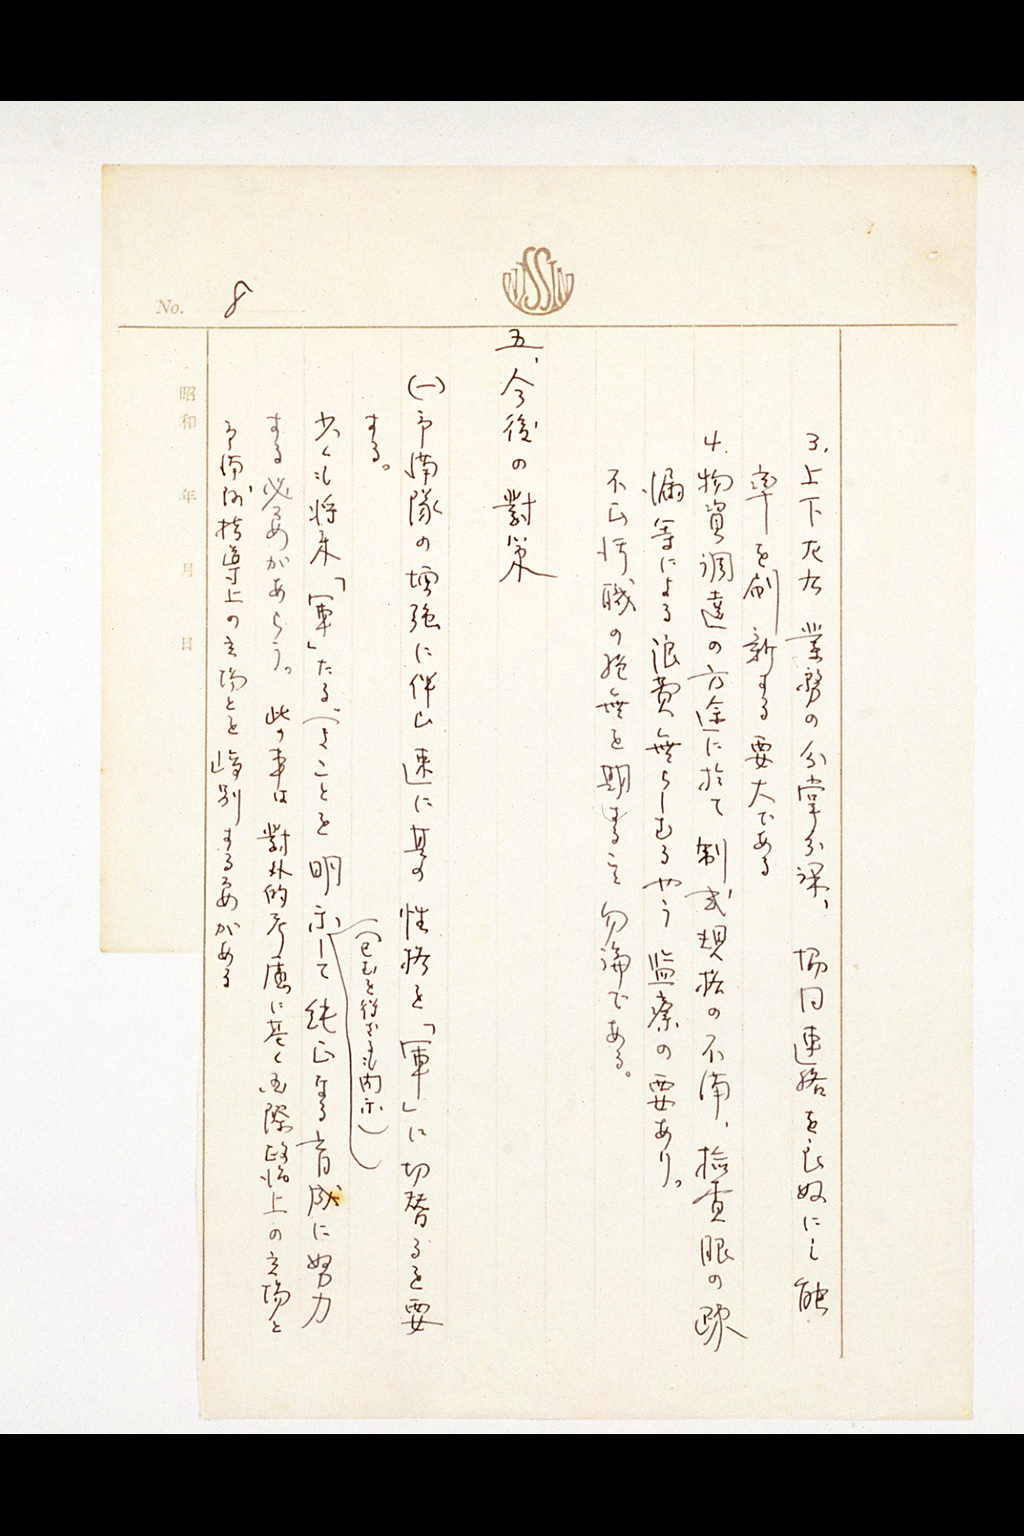 NISSIN
No. 8
3. 上下左右 業務の分掌分課、協同連絡を良好にし能
率を刷新する要大である
4. 物資調達の方途に於て制式規格の不備、検査眼の疎
漏等による浪費無らしむるやう監察の要あり。
不正汚職の絶無を期する之勿論である。
五、今後の對策
(一) 予備隊の増強に伴ひ速に其の性格を「軍」に切替るを要
する。
(已むを得ざるも内示)
少くも将来「軍」たるべきことを明示して純正なる育成に努力
する必要があらう。此の事は對外的考慮に基く国際政治上の立場と
予備隊指導上の立場とを峻別する要がある
昭和 年 月 日